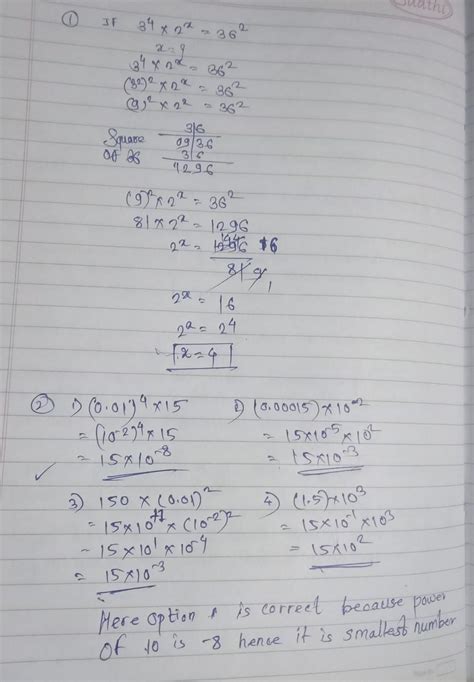 Saathi
① If 3⁴ × 2ˣ = 36²
x = ?
3⁴ × 2ˣ = 36²
(3²)² × 2ˣ = 36²
(9)² × 2ˣ = 36²
Square of 36
3|6
09|36
3 6
1296
(9)² × 2ˣ = 36²
81 × 2ˣ = 1296
2ˣ = 1296 144 16
81 9 1
2ˣ = 16
2ˣ = 24
x = 4
② 1) (0.01)⁴ × 15
= (10⁻²)⁴ × 15
= 15 × 10⁻⁸
2) (0.00015) × 10⁻²
= 15 × 10⁻⁵ × 10²
= 15 × 10⁻³
3) 150 × (0.01)²
= 15 × 10¹ × (10⁻²)²
= 15 × 10¹ × 10⁻⁴
= 15 × 10⁻³
4) (1.5) × 10³
= 15 × 10⁻¹ × 10³
= 15 × 10²
Here option 1 is correct because power
of 10 is -8 hence it is smallest number